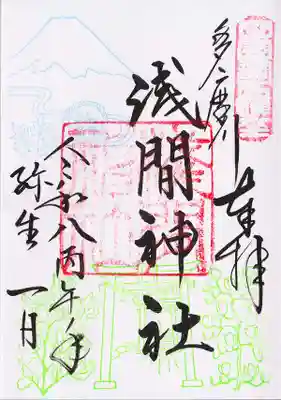 多摩川
奉拝
浅間神社
令和八丙午年
弥生
一日